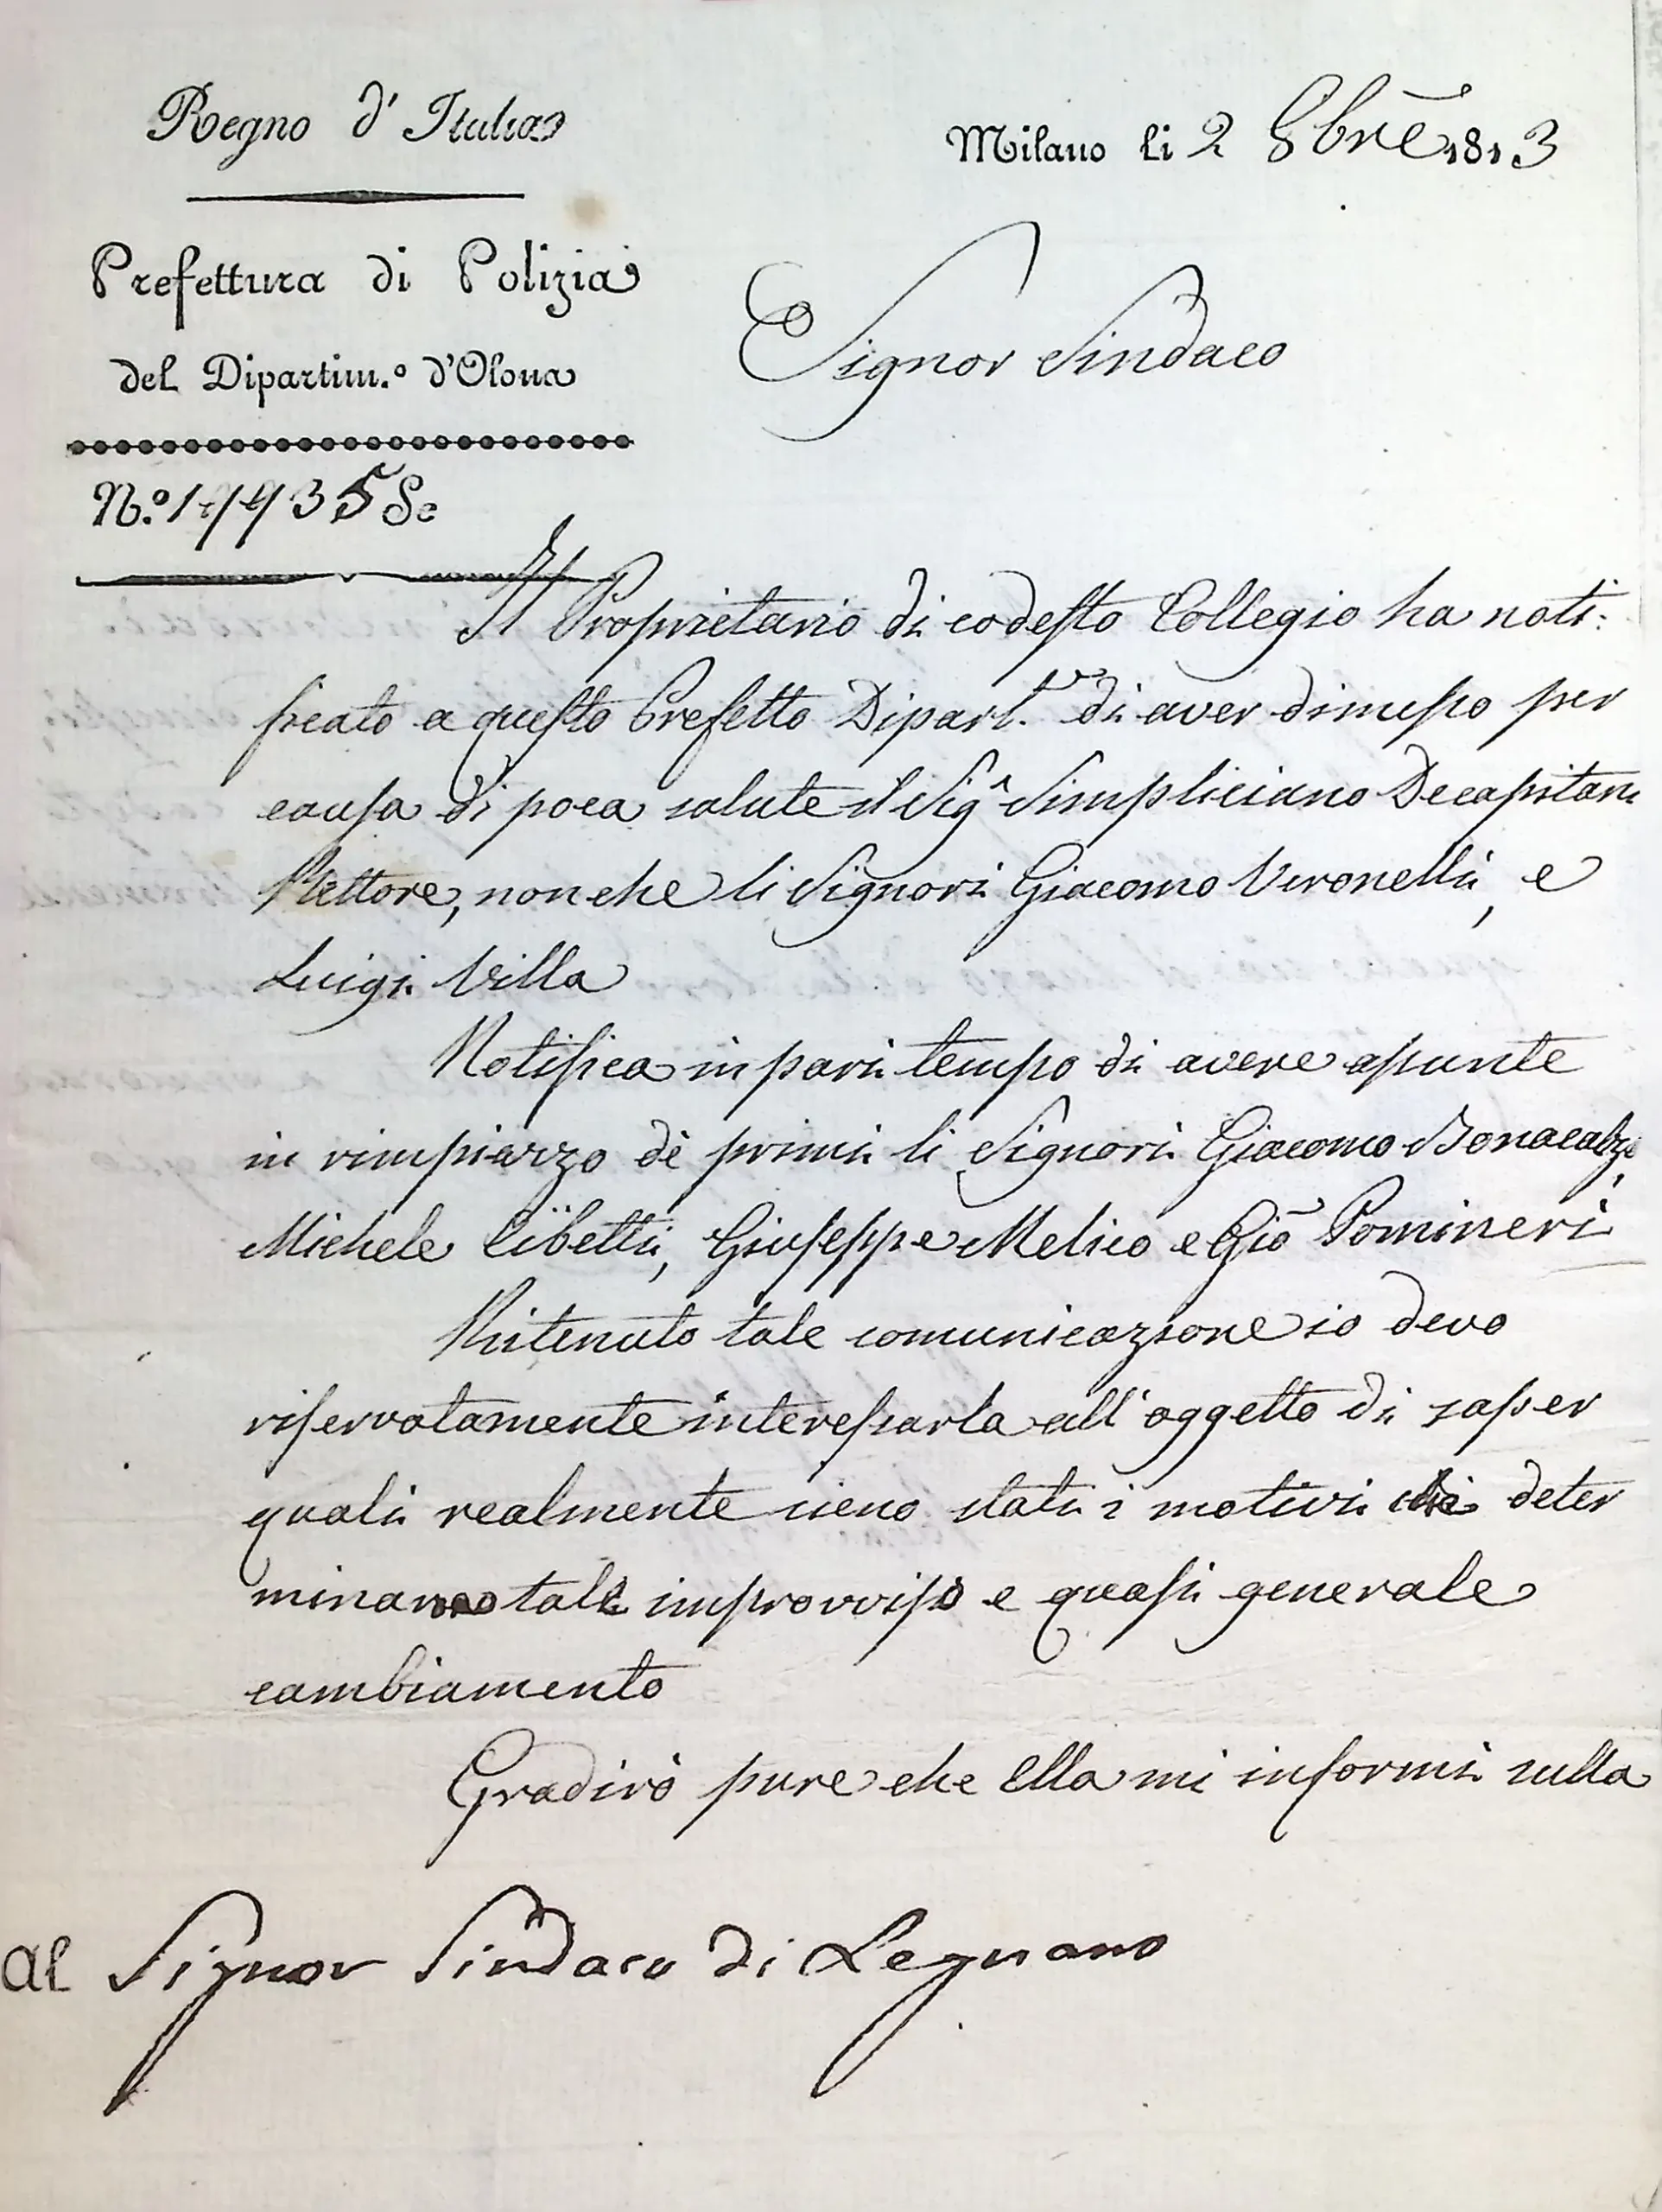 Regno d'Italia
Milano li 2 8bre 1813
Prefettura di Polizia
del Dipartim.o d'Olona
Signor Sindaco
Il Proprietario di codesto Collegio ha noti:
ficato a questo Prefetto Dipart.e di aver dimesso per
causa di poca salute il Sigr Simpliciano Decapitani
Rettore, non che li Signori Giacomo Veronelli, e
Luigi Villa
Notifica in pari tempo di avere assunte
in rimpiazzo dè primi li Signori Giacomo Bonacalza,
Michele Cibetti, Giuseppe Melico e Gio Pomineri
Ritenuto tale comunicazione io devo
riservatamente interessarla all'oggetto di saper
quali realmente sieno stati i motivi che deter
minarono tale improvviso e quasi generale
cambiamento
Gradirò pure che Ella mi informi sulla
Al Signor Sindaco di Legnano